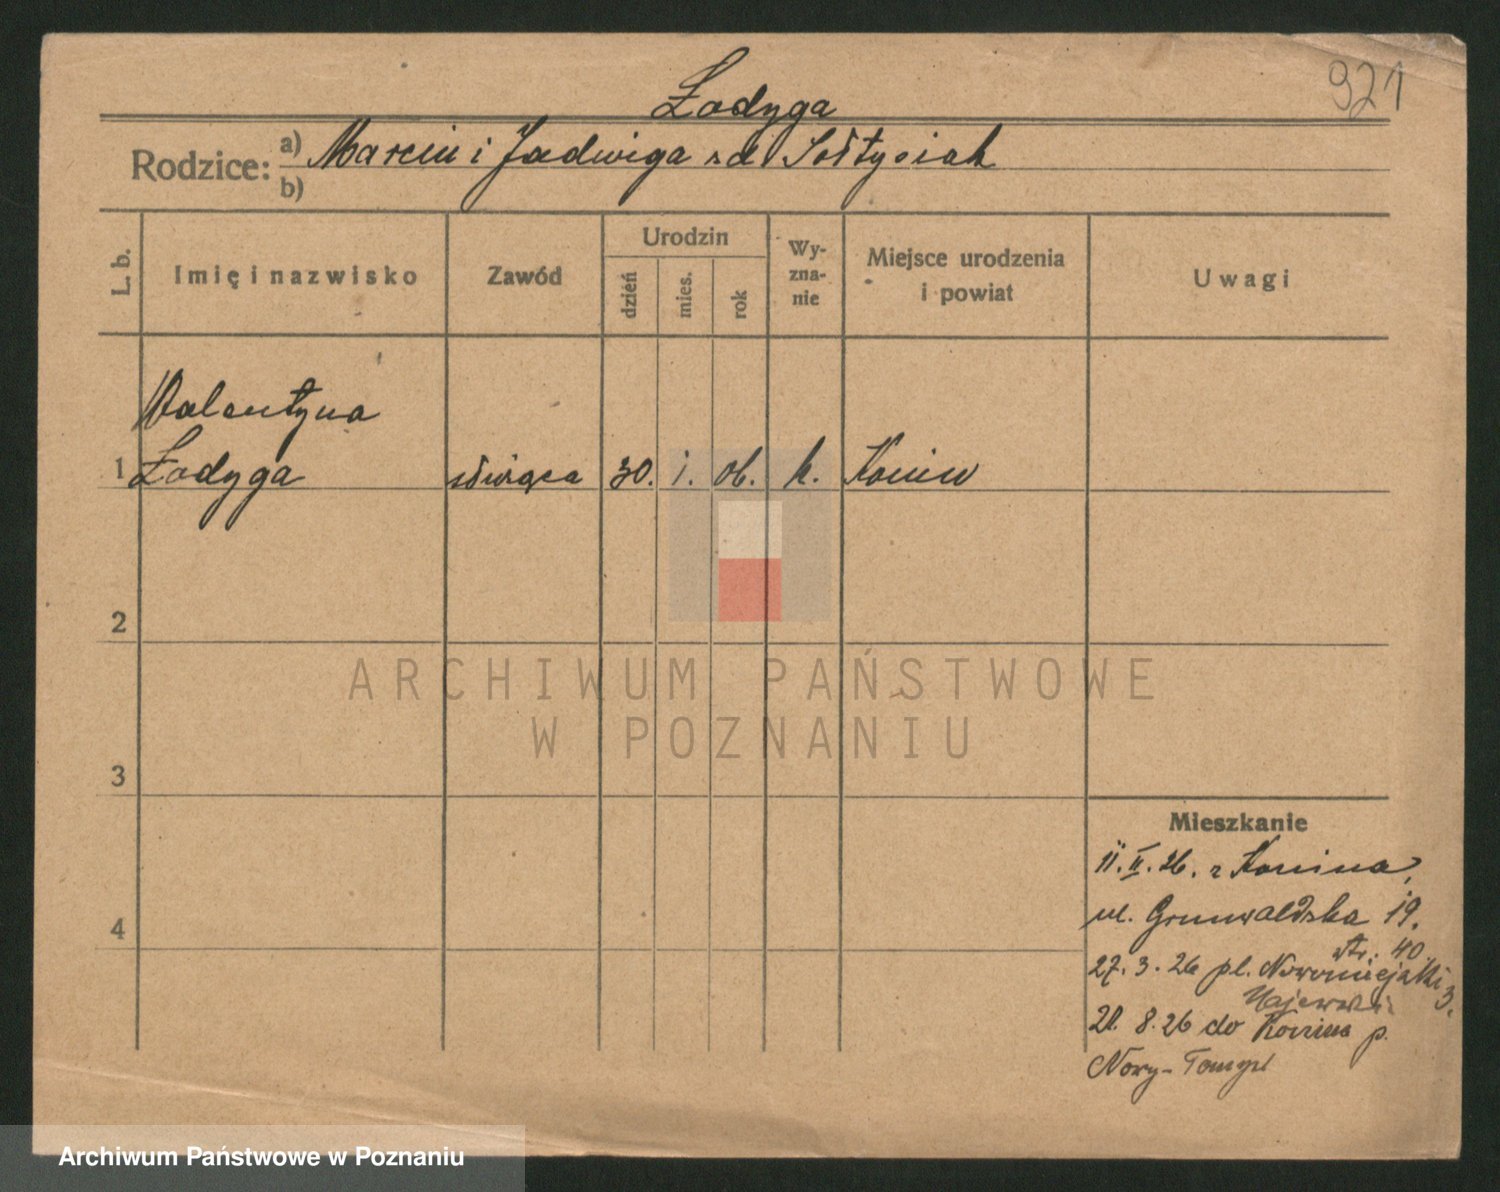 921
Łodyga
Rodzice: a) Marcin i Jadwiga z d. Sołtysiak
b)
L. b.
Imię i nazwisko
Zawód
Urodzin
dzień
mies.
rok
Wy-
zna-
nie
Miejsce urodzenia
i powiat
Uwagi
Walentyna
1 Łodyga służąca 30. i. 06. k. Konin
2
3
4
Mieszkanie
11. II. 26. z Konina,
ul. Grunwaldska 19.
str. 40.
27. 3. 26 pl. Nowomiejski 3.
21. 8. 26 do Konina p.
Nowy-Tomyśl
ARCHIWUM PAŃSTWOWE
W POZNANIU
Archiwum Państwowe w Poznaniu